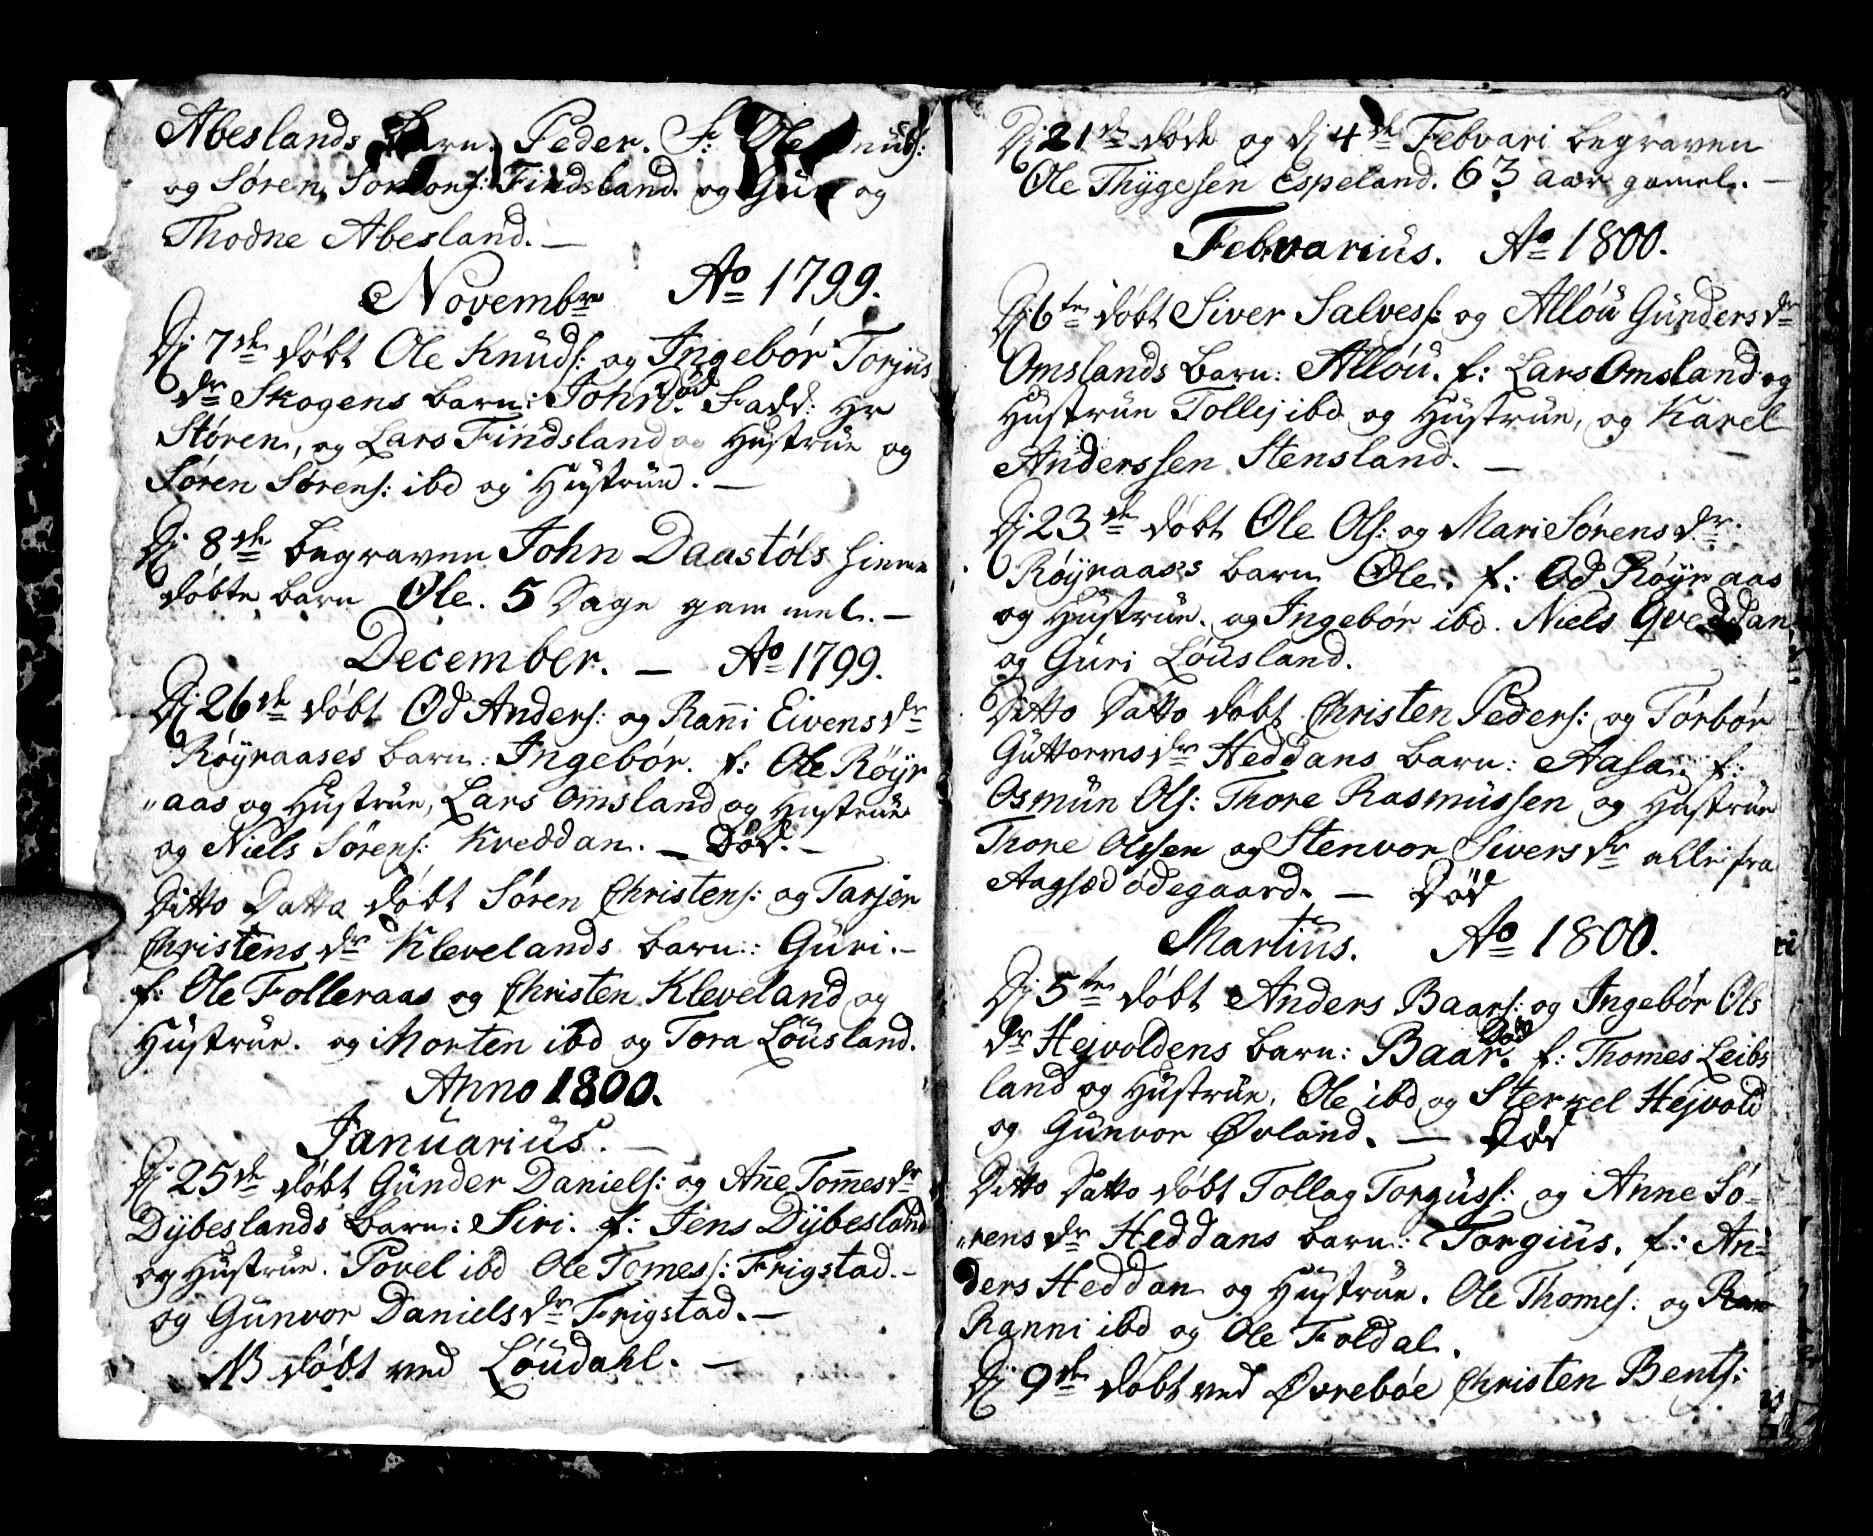 Abeslands barn. Peder. F: Ole Knuds:
og Søren Findsland og Guri og
Thodne Abesland. —
Novembr Ao 1799.
Dj 7de døbt Ole Knuds: og Ingebór Torjus
dr Skogens barn: John. Død Fadd: Hr
Støren, og Lars Findsland og Hustrue og
Søren Sørens: ibd og Hustrue. —
Dj 8de begraven John Daastóls hiemme
døbte barn Ole. 5 Dage gammel. —
December. — Ao 1799.
Dj 26de døbt Od Anders: og Rañi Eivens dr
Røÿraases barn: Ingebór. f: Ole Røÿr
"aas og Hustrue, Lars Omsland og Hustrue
og Niels Sørens: Kveddan. — Død. —
Ditto Datto døbt Søren Christens: og Tarjer
Christens dr Klevelands barn: Guri. —
f: Ole Folleraas og Christen Kleveland og
Hustrue. og Morten ibd og Tora Løusland.
Anno 1800.
Januarius. —
Dj 25de døbt Gunder Daniels: og Añe Tom̃es dr
Dÿbeslands barn: Siri. f: Jens Dÿbesland
og Hustrue. Povel ibd Ole Tomes: Frigstad. —
og Gunvor Daniels dr Frigstad. —
NB døbt ved Løudahl. —
Dj 21de døde og dj 4de Febvari begraven
Ole Thÿgesen Espeland. 63 aar gamel. —
Febvarius. Ao 1800.
Dj 6te døbt Siver Salves: og Alløu Gunders dr
Omslands barn: Alløu. f: Lars Omsland og
Hustrue Tollej ibd og Hustrue, og Karel
Anderssen Stensland. —
Dj 23de døbt Ole Ols: og Mari Sørens dr
Røÿraases barn Ole. f: Od Røÿraas
og Hustrue. og Ingebór ibd. Niels Qveddan
og Guri Løusland.
Ditto Datto døbt Christen Peders: og Tórbór
Guttorms dr Heddans barn: Aasa. f:
Osmun Ols: Thore Rasmussen og Hustrue
Thore Olssen og Stenvor Sivers dr alle fra
Aagsæd ødegaard. — Død
Martius. Ao 1800.
Dj 5te døbt Anders Baars: og Ingebór Ols
dr Hejvoldens barn: Baar. Død f: Thomes Leibs
land og Hustrue, Ole ibd og Sterkel Hejvold
og Gunvor Øvland. — Død
Ditto Datto døbt Tollag Torguss: og Anne Sø-
"rens dr Heddans barn: Torgius. f: An-
ders Heddan og Hustrue. Ole Thomes: og Ran
Ranni ibd og Ole Foldal.
Dj 9de døbt ved Øvrebøe Christen Bents: